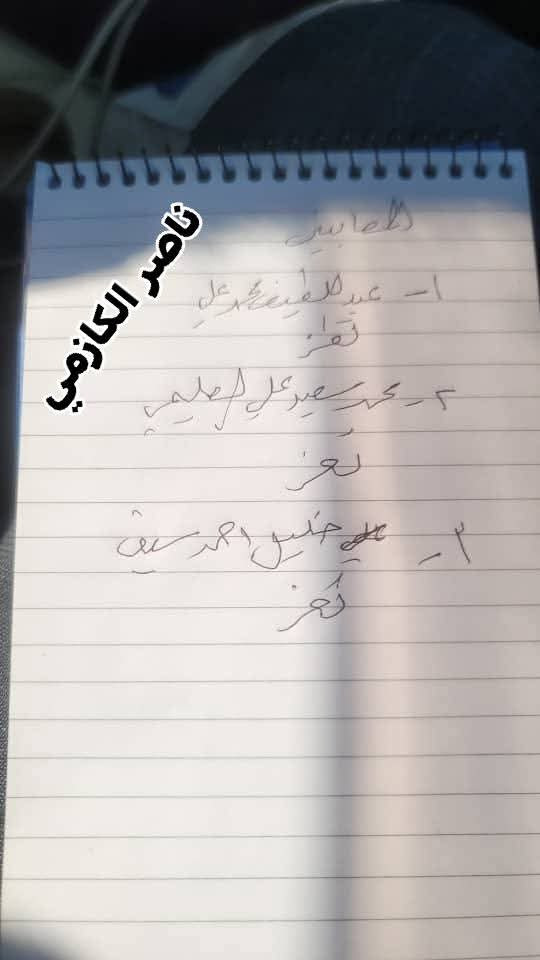 المصابين
١- عبداللطيف محمد علي
تعز
٢- محمد سعيد علي الصليحي
تعز
٣- خليل احمد سيف
تعز
ناصر الكازمي